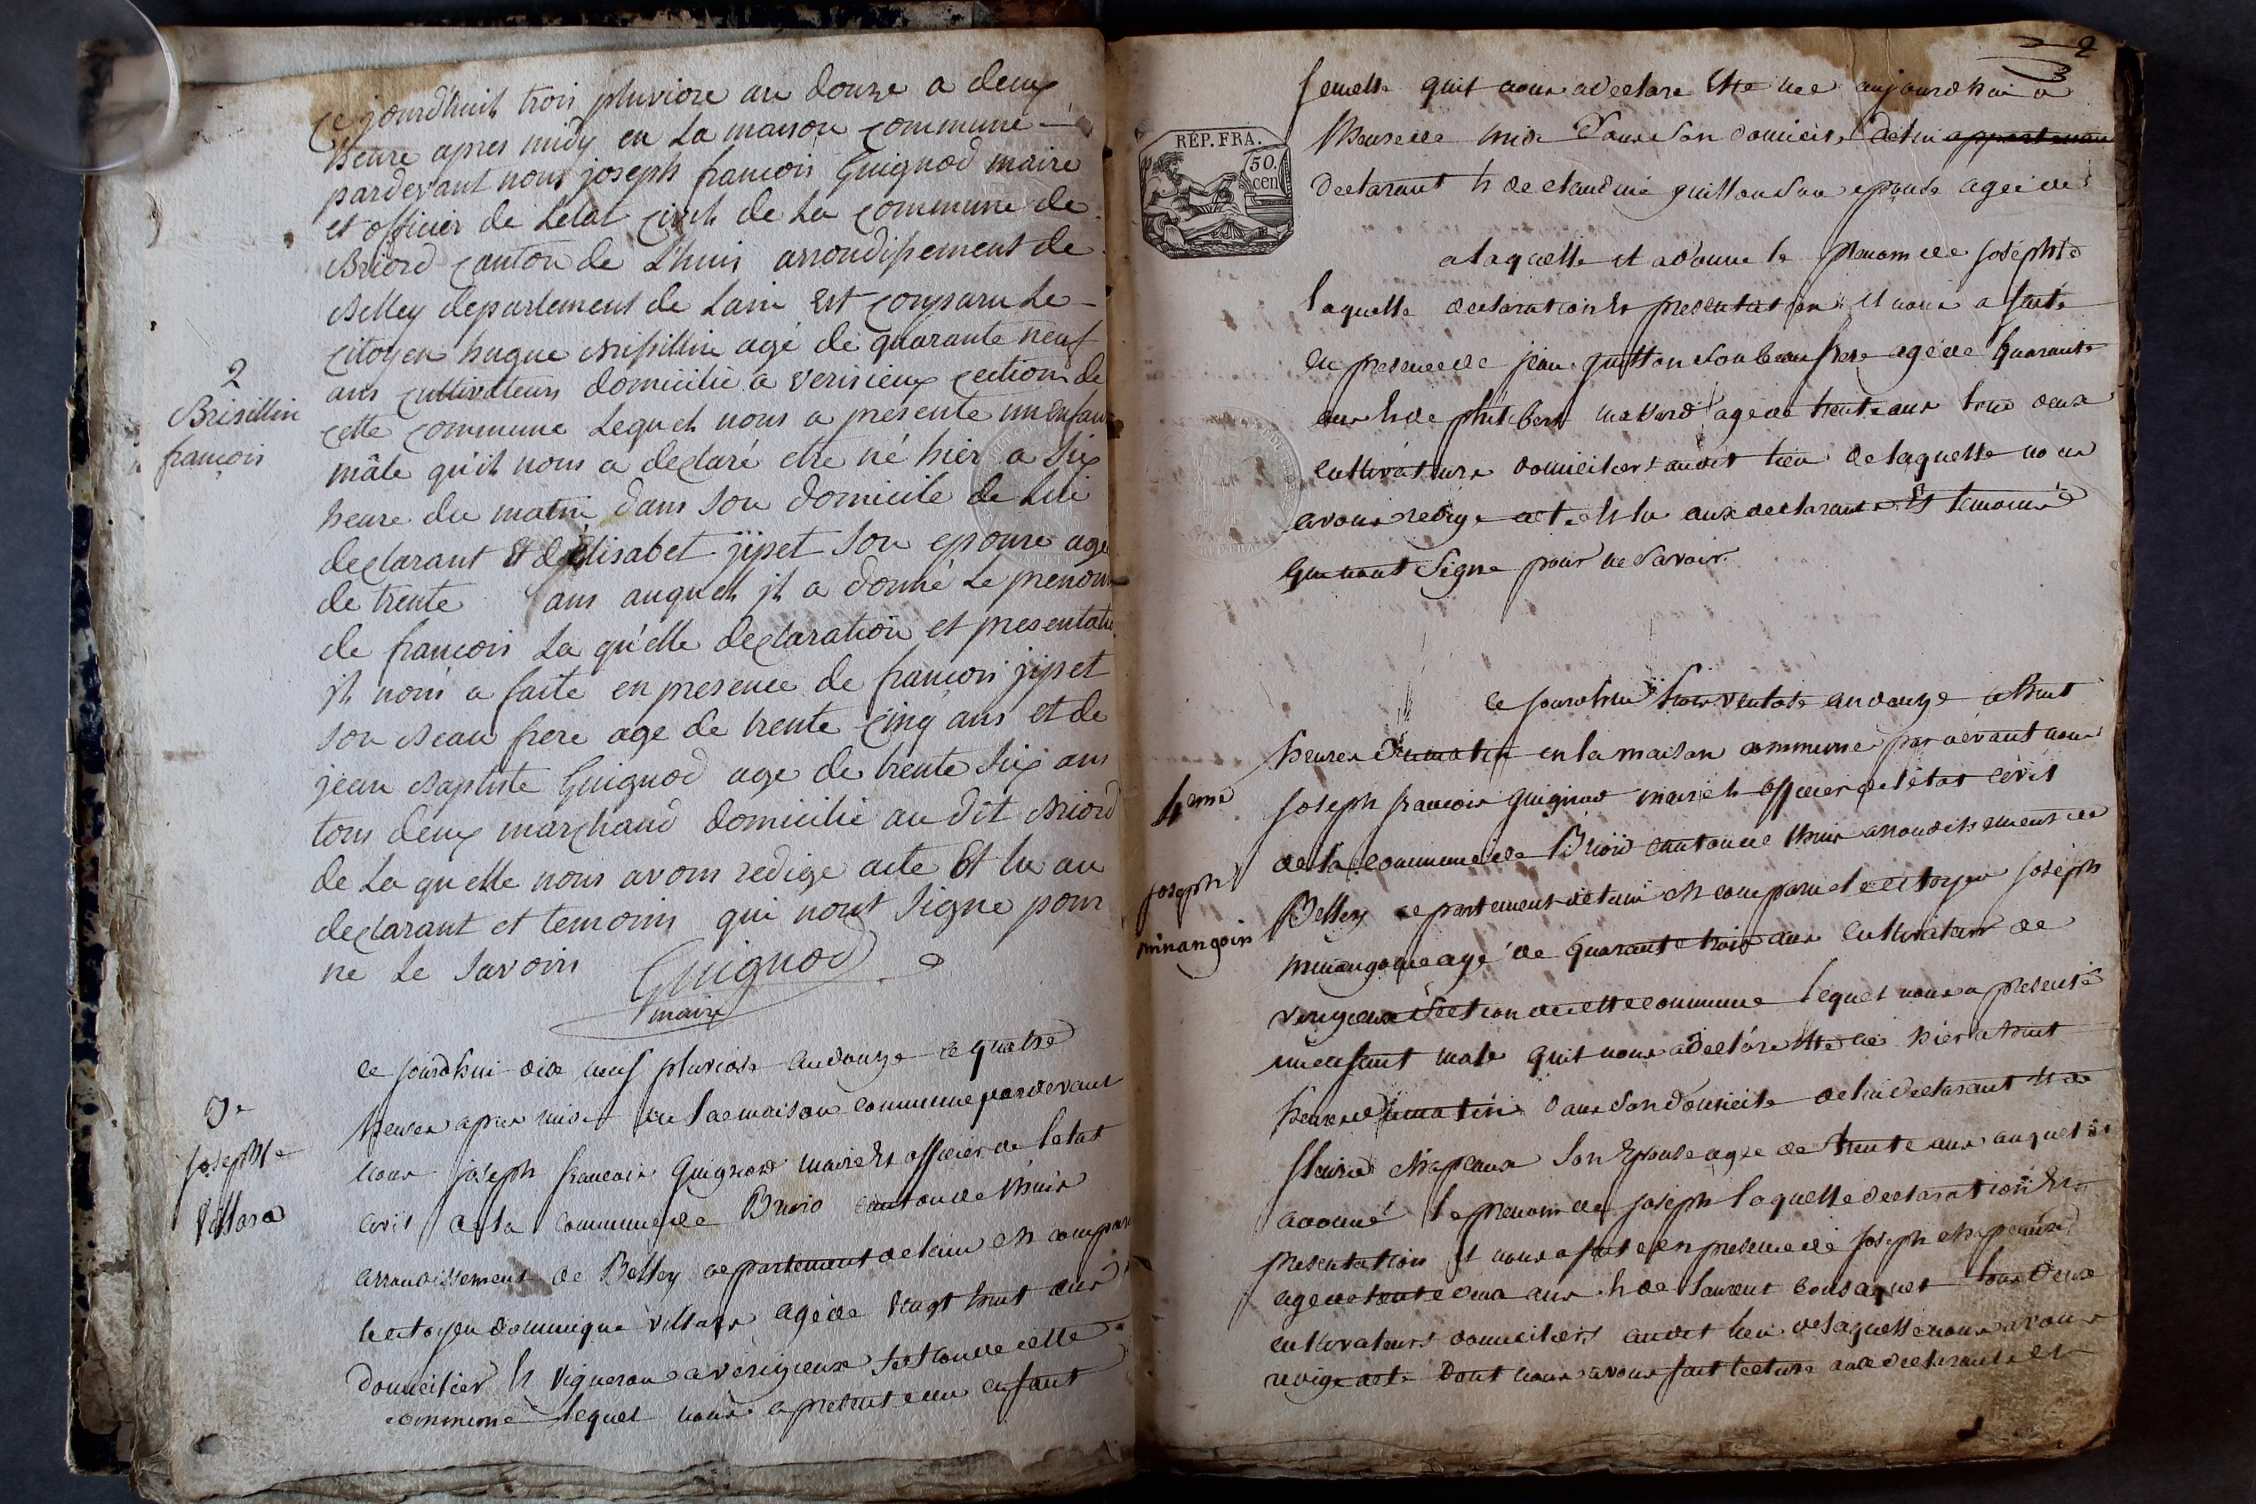 Ce jourdhuit trois pluviose an douze a deux
heure apres midy en La maison commune
pardevant nous joseph francois Guignod maire
et officier de Letat civil de La commune de
Briord canton de Lhuis arrondissement de
Belley departement de Lain est comparu Le
citoyen hugue Brisillin agé de quarante neuf
ans cultivateurs domicilié a verisieux section de
2
Brisillin
françois
cette commune Lequel nous a presente un enfant
mâle qu'il nous a declaré etre né hier a six
heure du matin dans son domicile de Lui
declarant et d'elisabet jipet son epouse agé
de trente ans auquel il a donné Le prenom
de francois La qu'elle declaration et presentatio
il nous a faite en presence de francois jipet
son Beau frere age de trente cinq ans et de
jean Baptiste Guignod age de trente six ans
tous deux marchand domicilié au dit Briord
de La qu'elle nous avons redige acte Et lu au
declarant et temoins qui n'ont signe pour
ne Le savoir
Guignod
maire
3e
josephte
villard
ce jourdhui dix neuf pluviose an douze a quatre
heures apres midi en la maison commune pardevant
nous joseph francois Guignod maire et officier de letat
civil de la commune de Briord canton de lhuis
arrondissement de Belley departement de lain est comparu
le citoyen dominique villard agé de vingt huit ans
domicilier et vigneron a verizieux section de cette
commune lequel nous a presente un enfant
2
femelle quil nous a declare etre nee aujourdhui a
RÉP. FRA.
50.
cen
heure de midi dans son domicile de lui appartenan
declarant et de claudine guitton son epouse agée de
a laquelle il a donne le prenom de josephte
laquelle declaration et presentation il nous a faite
en presence de jean guitton son beau frere agé de quarante
ans et de philibert mavord age de trente ans tous deux
cultivateurs domiciliers audit lieu de laquelle nous
avons redige acte et lu aux declarants et temoins
qui n'ont signe pour ne savoir.
4eme
joseph
minangoin
ce jourdhui trois ventose an douze a huit
heures du matin en la maison commune par devant nous
joseph francois Guignod maire et officier de letat civil
de la commune de Briord canton de lhuis arrondissement de
Belley departement de lain est comparu le citoyen joseph
minangoin agé de quarante trois ans cultivateur de
verizieux section de cette commune lequel nous a presenté
un enfant male quil nous a declare etre né hier a huit
heures du matin dans son domicile de lui declarant et de
fleurie chapeaux son epouse agee de trente ans auquel il
a donné le prenom de joseph laquelle declaration et
presentation il nous a faite en presence de joseph chapeaux
age de trente deux ans et de laurent tous deux
cultivateurs domiciliers audit lieu de laquelle nous avons
redige acte dont nous avons fait lecture aux declarants et